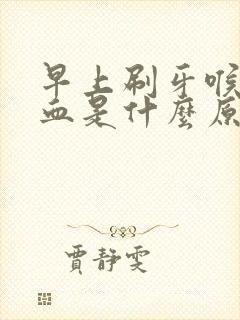 早上刷牙喉
血是什麼原
賈靜雯